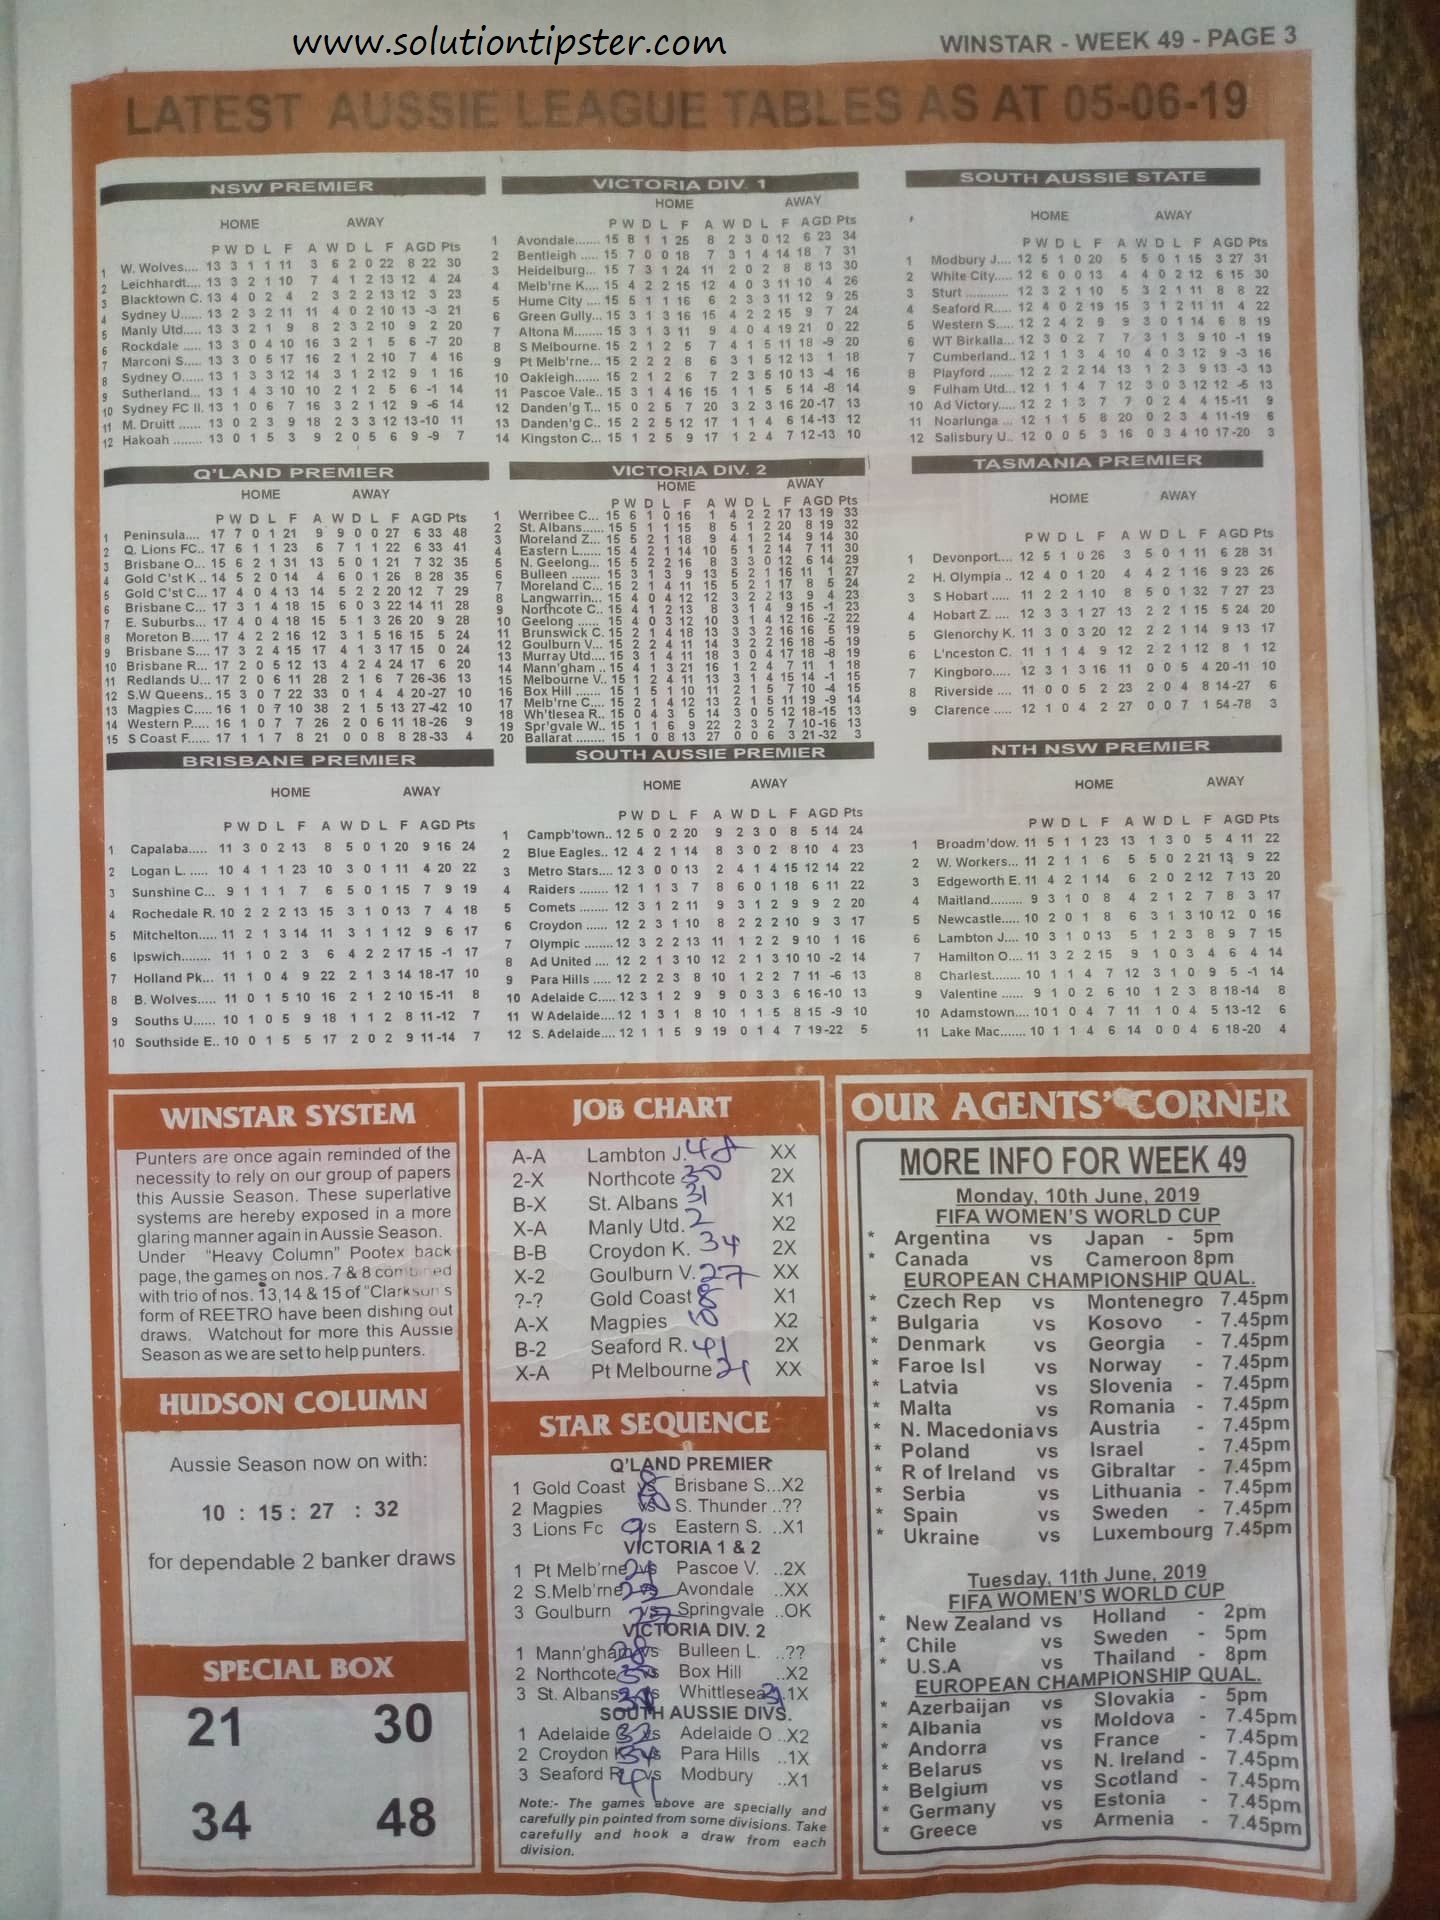 www.solutiontipster.com
WINSTAR - WEEK 49 - PAGE 3
LATEST AUSSIE LEAGUE TABLES AS AT 05-06-19
NSW PREMIER
HOME AWAY
P W D L F A W D L F AGD Pts
1 W. Wolves.... 13 3 1 1 11 3 6 2 0 22 8 22 30
2 Leichhardt.... 13 3 2 1 10 7 4 1 2 13 12 4 24
3 Blacktown C. 13 4 0 2 4 2 3 2 2 13 12 3 23
4 Sydney U...... 13 2 3 2 11 11 4 0 2 10 13 -3 21
5 Manly Utd.... 13 3 2 1 9 8 2 3 2 10 9 2 20
6 Rockdale ..... 13 3 0 4 10 16 3 2 1 5 6 -7 20
7 Marconi S..... 13 3 0 5 17 16 2 1 2 10 7 4 16
8 Sydney O...... 13 1 3 3 12 14 3 1 2 12 9 1 16
9 Sutherland... 13 1 4 3 10 10 2 1 2 5 6 -1 14
10 Sydney FC II. 13 1 0 6 7 16 3 2 1 12 9 -6 14
11 M. Druitt ...... 13 0 2 3 9 18 2 3 3 12 13-10 11
12 Hakoah ........ 13 0 1 5 3 9 2 0 5 6 9 -9 7
VICTORIA DIV. 1
HOME AWAY
P W D L F A W D L F AGD Pts
1 Avondale....... 15 8 1 1 25 8 2 3 0 12 6 23 34
2 Bentleigh ..... 15 7 0 0 18 7 3 1 4 14 18 7 31
3 Heidelburg... 15 7 3 1 24 11 2 0 2 8 8 13 30
4 Melb'rne K.... 15 4 2 2 15 12 4 0 3 11 10 4 26
5 Hume City .... 15 5 1 1 16 6 2 3 3 11 12 9 25
6 Green Gully... 15 3 1 3 16 15 4 2 2 15 9 7 24
7 Altona M........ 15 3 1 3 11 9 4 0 4 19 21 0 22
8 S Melbourne. 15 2 1 2 5 7 4 1 5 11 18 -9 20
9 Pt Melb'rne... 15 2 2 2 8 6 3 1 5 12 13 1 18
10 Oakleigh....... 15 2 1 2 6 7 2 3 5 10 13 -4 16
11 Pascoe Vale.. 15 3 1 4 16 15 1 1 5 5 14 -8 14
12 Danden'g T... 15 0 2 5 7 20 3 2 3 16 20-17 13
13 Danden'g C.. 15 2 2 5 12 17 1 1 4 6 14-13 12
14 Kingston C... 15 1 2 5 9 17 1 2 4 7 12-13 10
SOUTH AUSSIE STATE
HOME AWAY
P W D L F A W D L F AGD Pts
1 Modbury J.... 12 5 1 0 20 5 5 0 1 15 3 27 31
2 White City..... 12 6 0 0 13 4 4 0 2 12 6 15 30
3 Sturt ............ 12 3 2 1 10 5 3 2 1 11 8 8 22
4 Seaford R..... 12 4 0 2 19 15 3 1 2 11 11 4 22
5 Western S.... 12 2 4 2 9 9 3 0 1 14 6 8 19
6 WT Birkalla... 12 3 0 2 7 7 3 1 3 9 10 -1 19
7 Cumberland.. 12 1 1 3 4 10 4 0 3 12 9 -3 16
8 Playford ...... 12 2 2 2 14 13 1 2 3 9 13 -3 13
9 Fulham Utd... 12 1 1 4 7 12 3 0 3 12 12 -5 13
10 Ad Victory.... 12 2 1 3 7 7 0 2 4 4 15-11 9
11 Noarlunga .... 12 1 1 5 8 20 0 2 3 4 11-19 6
12 Salisbury U.. 12 0 0 5 3 16 0 3 4 10 17-20 3
Q'LAND PREMIER
HOME AWAY
P W D L F A W D L F AGD Pts
1 Peninsula.... 17 7 0 1 21 9 9 0 0 27 6 33 48
2 Q. Lions FC.. 17 6 1 1 23 6 7 1 1 22 6 33 41
3 Brisbane O... 15 6 2 1 31 13 5 0 1 21 7 32 35
4 Gold C'st K .. 14 5 2 0 14 4 6 0 1 26 8 28 35
5 Gold C'st C... 17 4 0 4 13 14 5 2 2 20 12 7 29
6 Brisbane C... 17 3 1 4 18 15 6 0 3 22 14 11 28
7 E. Suburbs... 17 4 0 4 18 15 5 1 3 26 20 9 28
8 Moreton B..... 17 4 2 2 16 12 3 1 5 16 15 5 24
9 Brisbane S.... 17 3 2 4 15 17 4 1 3 17 15 0 24
10 Brisbane R... 17 2 0 5 12 13 4 2 4 24 17 6 20
11 Redlands U... 17 2 0 6 11 28 2 1 6 7 26-36 13
12 S.W Queens.. 15 3 0 7 22 33 0 1 4 4 20-27 10
13 Magpies C.... 16 1 0 7 10 38 2 1 5 13 27-42 10
14 Western P..... 16 1 0 7 7 26 2 0 6 11 18-26 9
15 S Coast F...... 17 1 1 7 8 21 0 0 8 8 28-33 4
VICTORIA DIV. 2
HOME AWAY
P W D L F A W D L F AGD Pts
1 Werribee C... 15 6 1 0 16 1 4 2 2 17 13 19 33
2 St. Albans...... 15 5 1 1 15 8 5 1 2 20 8 19 32
3 Moreland Z... 15 5 2 1 18 9 4 1 2 14 9 14 30
4 Eastern L...... 15 4 2 1 14 10 5 1 2 14 7 11 30
5 N. Geelong... 15 5 2 2 16 8 3 3 0 12 6 14 29
6 Bulleen ........ 15 3 1 3 9 13 5 2 1 16 11 1 27
7 Moreland C... 15 2 1 4 11 15 5 2 1 17 8 5 24
8 Langwarrin... 15 4 0 4 12 12 3 2 2 13 9 4 23
9 Northcote C.. 15 4 1 2 13 8 3 1 4 9 15 -1 23
10 Geelong ...... 15 4 0 3 12 10 3 1 4 12 16 -2 22
11 Brunswick C. 15 2 1 4 18 13 3 3 2 16 16 5 19
12 Goulburn V... 15 2 2 4 11 14 3 2 2 16 18 -5 19
13 Murray Utd.... 15 3 1 4 11 18 3 0 4 17 18 -8 19
14 Mann'gham .. 15 4 1 3 21 16 1 2 4 7 11 1 18
15 Melbourne V.. 15 1 2 4 11 13 3 1 4 15 14 -1 15
16 Box Hill ....... 15 1 5 1 10 11 2 1 5 7 10 -4 15
17 Melb'rne C.... 15 2 1 4 12 13 2 1 5 11 19 -9 14
18 Wh'tlesea R.. 15 0 4 3 5 14 3 0 5 12 18-15 13
19 Spr'gvale W.. 15 1 1 6 9 22 2 3 2 7 10-16 13
20 Ballarat ........ 15 1 0 8 13 27 0 0 6 3 21-32 3
TASMANIA PREMIER
HOME AWAY
P W D L F A W D L F AGD Pts
1 Devonport.... 12 5 1 0 26 3 5 0 1 11 6 28 31
2 H. Olympia .. 12 4 0 1 20 4 4 2 1 16 9 23 26
3 S Hobart ..... 11 2 2 1 10 8 5 0 1 32 7 27 23
4 Hobart Z. .... 12 3 3 1 27 13 2 2 1 15 5 24 20
5 Glenorchy K. 11 3 0 3 20 12 2 2 1 14 9 13 17
6 L'nceston C. 11 1 1 4 9 12 2 2 1 12 8 1 12
7 Kingboro...... 12 3 1 3 16 11 0 0 5 4 20-11 10
8 Riverside .... 11 0 0 5 2 23 2 0 4 8 14-27 6
9 Clarence ..... 12 1 0 4 2 27 0 0 7 1 54-78 3
BRISBANE PREMIER
HOME AWAY
P W D L F A W D L F AGD Pts
1 Capalaba..... 11 3 0 2 13 8 5 0 1 20 9 16 24
2 Logan L. ..... 10 4 1 1 23 10 3 0 1 11 4 20 22
3 Sunshine C... 9 1 1 1 7 6 5 0 1 15 7 9 19
4 Rochedale R. 10 2 2 2 13 15 3 1 0 13 7 4 18
5 Mitchelton..... 11 2 1 3 14 11 3 1 1 12 9 6 17
6 Ipswich........ 11 1 0 2 3 6 4 2 2 17 15 -1 17
7 Holland Pk... 11 1 0 4 9 22 2 1 3 14 18-17 10
8 B. Wolves..... 11 0 1 5 10 16 2 1 2 10 15-11 8
9 Souths U...... 10 1 0 5 9 18 1 1 2 8 11-12 7
10 Southside E.. 10 0 1 5 5 17 2 0 2 9 11-14 7
SOUTH AUSSIE PREMIER
HOME AWAY
P W D L F A W D L F AGD Pts
1 Campb'town.. 12 5 0 2 20 9 2 3 0 8 5 14 24
2 Blue Eagles.. 12 4 2 1 14 8 3 0 2 8 10 4 23
3 Metro Stars.... 12 3 0 0 13 2 4 1 4 15 12 14 22
4 Raiders ........ 12 1 1 3 7 8 6 0 1 18 6 11 22
5 Comets ........ 12 3 1 2 11 9 3 1 2 9 9 2 20
6 Croydon ...... 12 2 3 1 10 8 2 2 2 10 9 3 17
7 Olympic ....... 12 3 2 2 13 11 1 2 2 9 10 1 16
8 Ad United .... 12 2 1 3 10 12 2 1 3 10 10 -2 14
9 Para Hills .... 12 2 2 3 8 10 1 2 2 7 11 -6 13
10 Adelaide C..... 12 3 1 2 9 9 0 3 3 6 16-10 13
11 W Adelaide.... 12 1 3 1 8 10 1 1 5 8 15 -9 10
12 S. Adelaide.... 12 1 1 5 9 19 0 1 4 7 19-22 5
NTH NSW PREMIER
HOME AWAY
P W D L F A W D L F AGD Pts
1 Broadm'dow. 11 5 1 1 23 13 1 3 0 5 4 11 22
2 W. Workers... 11 2 1 1 6 5 5 0 2 21 13 9 22
3 Edgeworth E. 11 4 2 1 14 6 2 0 2 12 7 13 20
4 Maitland...... 9 3 1 0 8 4 2 1 2 7 8 3 17
5 Newcastle..... 10 2 0 1 8 6 3 1 3 10 12 0 16
6 Lambton J.... 10 3 1 0 13 5 1 2 3 8 9 7 15
7 Hamilton O.... 11 3 2 2 15 9 1 0 3 4 6 4 14
8 Charlest....... 10 1 1 4 7 12 3 1 0 9 5 -1 14
9 Valentine ...... 9 1 0 2 6 10 1 2 3 8 18-14 8
10 Adamstown.... 10 1 0 4 7 11 1 0 4 5 13-12 6
11 Lake Mac....... 10 1 1 4 6 14 0 0 4 6 18-20 4
WINSTAR SYSTEM
Punters are once again reminded of the
necessity to rely on our group of papers
this Aussie Season. These superlative
systems are hereby exposed in a more
glaring manner again in Aussie Season.
Under "Heavy Column" Pootex back
page, the games on nos. 7 & 8 combined
with trio of nos. 13,14 & 15 of "Clarkson's
form of REETRO have been dishing out
draws. Watchout for more this Aussie
Season as we are set to help punters.
HUDSON COLUMN
Aussie Season now on with:
10 : 15 : 27 : 32
for dependable 2 banker draws
SPECIAL BOX
21 30
34 48
JOB CHART
A-A Lambton J. 48 XX
2-X Northcote 30 2X
B-X St. Albans 31 X1
X-A Manly Utd. 2 X2
B-B Croydon K. 34 2X
X-2 Goulburn V. 27 XX
?-? Gold Coast 8 X1
A-X Magpies 10 X2
B-2 Seaford R. 41 2X
X-A Pt Melbourne 21 XX
STAR SEQUENCE
Q'LAND PREMIER
1 Gold Coast 8 vs Brisbane S...X2
2 Magpies 10 vs S. Thunder ..??
3 Lions Fc 9 vs Eastern S. ..X1
VICTORIA 1 & 2
1 Pt Melb'rne 21 vs Pascoe V. ..2X
2 S.Melb'rne 22 Avondale ..XX
3 Goulburn 27 vs Springvale ..OK
VICTORIA DIV. 2
1 Mann'gham 28 vs Bulleen L. ..??
2 Northcote 30 vs Box Hill ..X2
3 St. Albans 31 vs Whittlesea 31 .1X
SOUTH AUSSIE DIVS.
1 Adelaide C 32 vs Adelaide O ..X2
2 Croydon K 34 vs Para Hills ..1X
3 Seaford R 41 vs Modbury ..X1
Note:- The games above are specially and
carefully pin pointed from some divisions. Take
carefully and hook a draw from each
division.
OUR AGENTS' CORNER
MORE INFO FOR WEEK 49
Monday, 10th June, 2019
FIFA WOMEN'S WORLD CUP
* Argentina vs Japan - 5pm
* Canada vs Cameroon 8pm
EUROPEAN CHAMPIONSHIP QUAL.
* Czech Rep vs Montenegro 7.45pm
* Bulgaria vs Kosovo - 7.45pm
* Denmark vs Georgia - 7.45pm
* Faroe Isl vs Norway - 7.45pm
* Latvia vs Slovenia - 7.45pm
* Malta vs Romania - 7.45pm
* N. Macedonia vs Austria - 7.45pm
* Poland vs Israel - 7.45pm
* R of Ireland vs Gibraltar - 7.45pm
* Serbia vs Lithuania - 7.45pm
* Spain vs Sweden - 7.45pm
* Ukraine vs Luxembourg 7.45pm
Tuesday, 11th June, 2019
FIFA WOMEN'S WORLD CUP
* New Zealand vs Holland - 2pm
* Chile vs Sweden - 5pm
* U.S.A vs Thailand - 8pm
EUROPEAN CHAMPIONSHIP QUAL.
* Azerbaijan vs Slovakia - 5pm
* Albania vs Moldova - 7.45pm
* Andorra vs France - 7.45pm
* Belarus vs N. Ireland - 7.45pm
* Belgium vs Scotland - 7.45pm
* Germany vs Estonia - 7.45pm
* Greece vs Armenia - 7.45pm